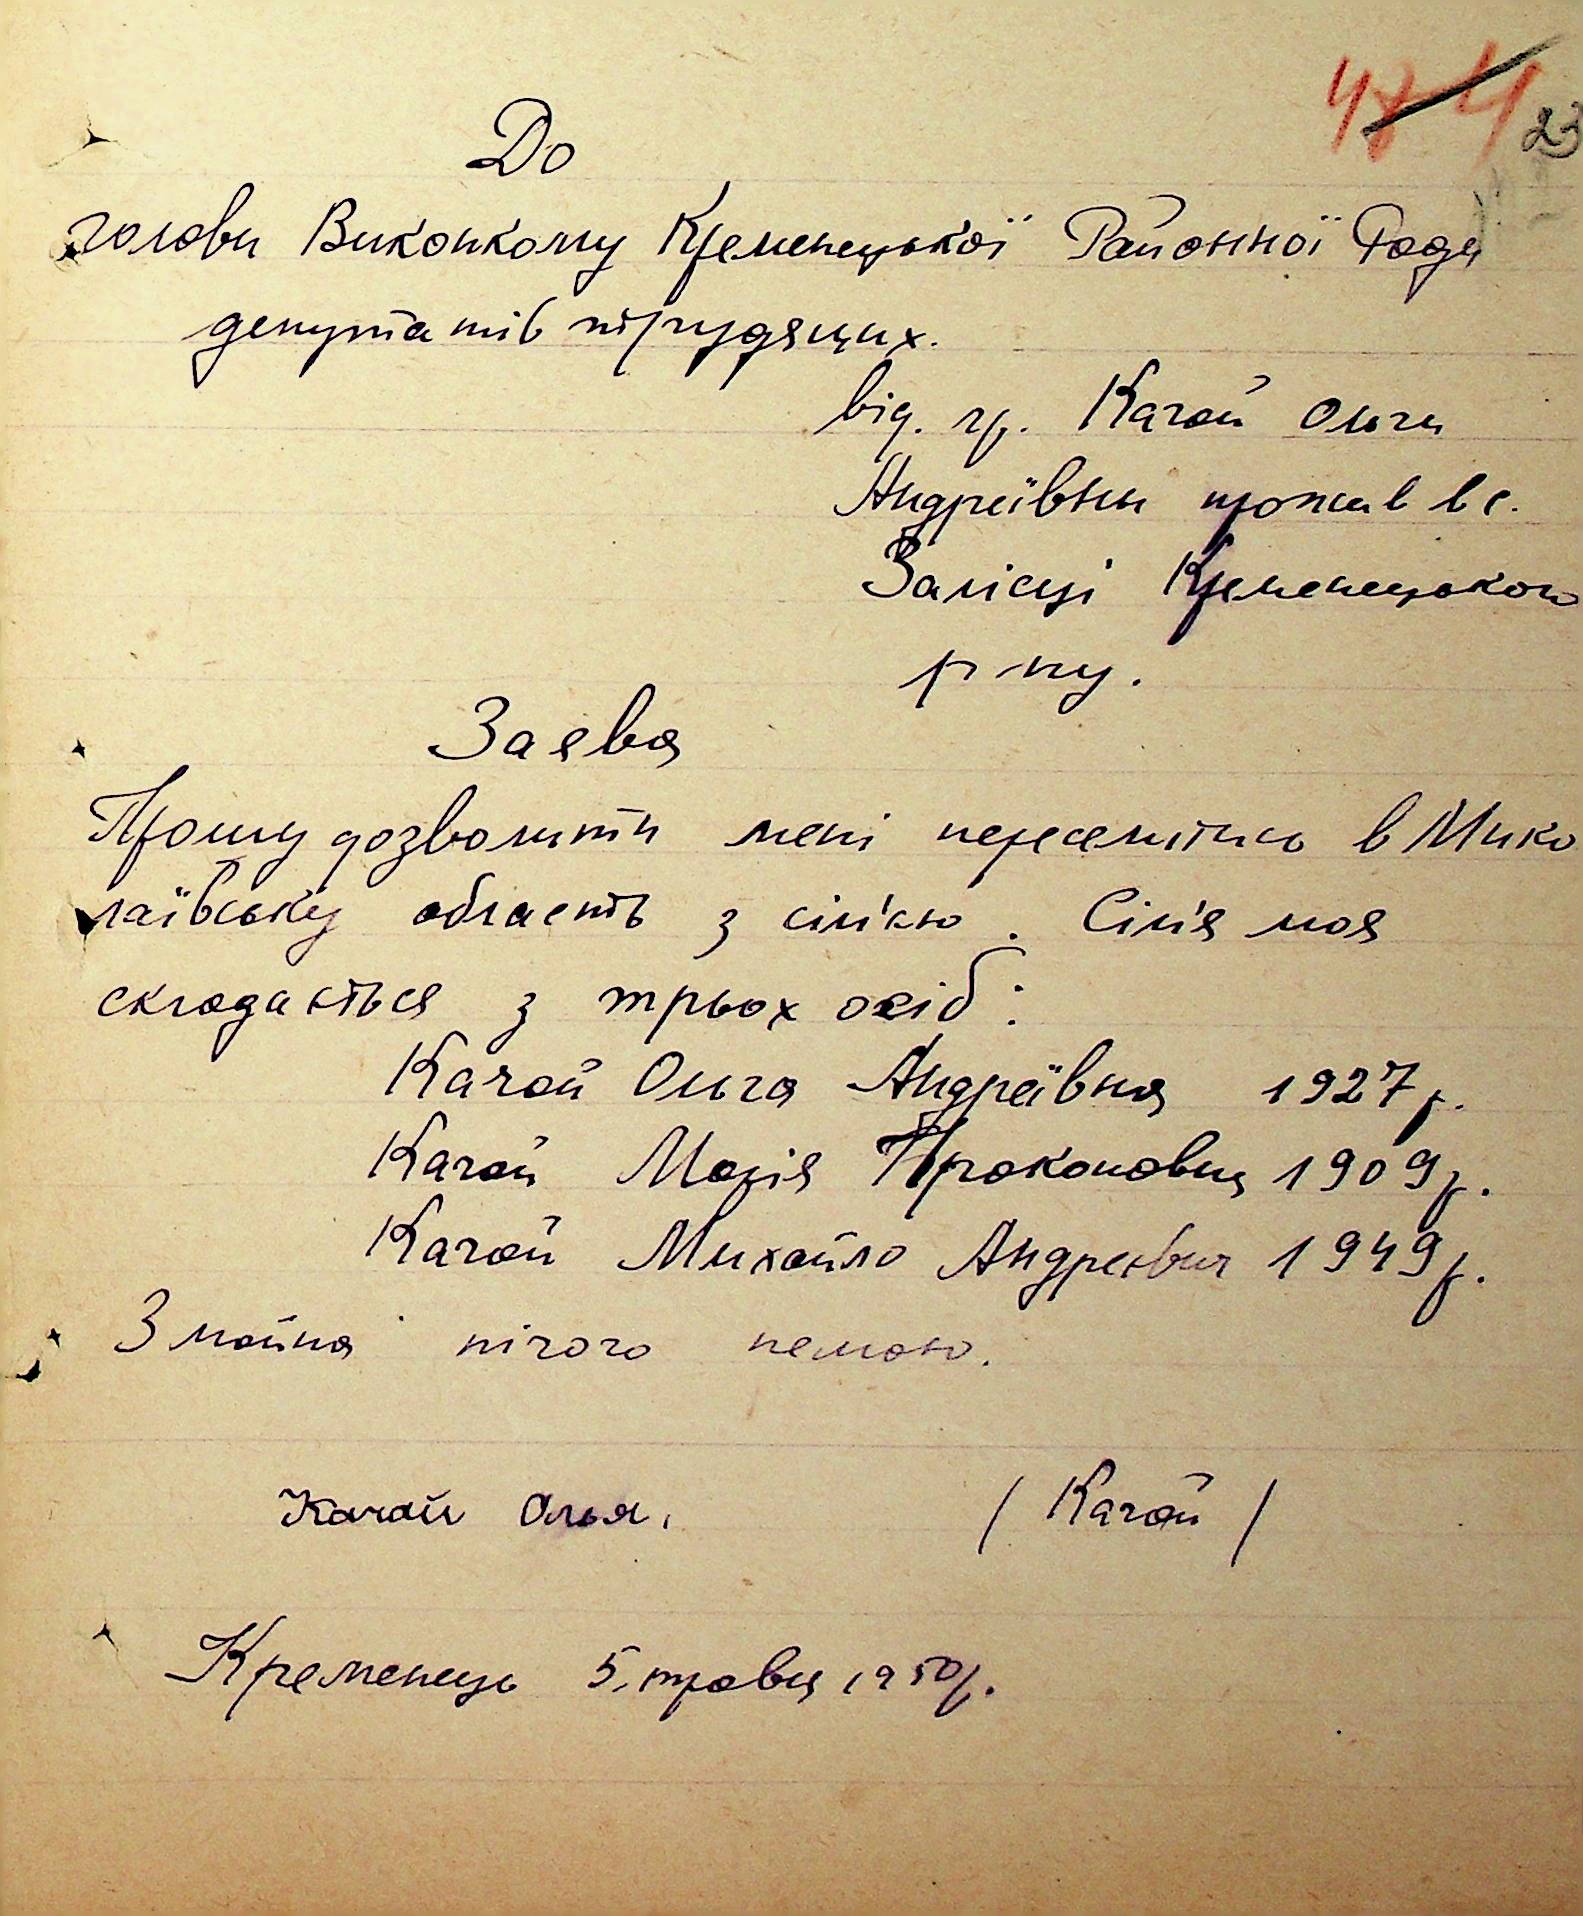 23
До
голови Виконкому Кременецької Районної Ради
депутатів трудящих.
від. гр. Качай Ольги
Андріївни прожив в с.
Залісці Кременецького
р ну.
Заява
Прошу дозволити мені переселитись в Мико
лаївську область з сім'єю. Сім'я моя
складається з трьох осіб:
Качай Ольга Андріївна 1927 р.
Качай Марія Прокоповна 1909 р.
Качай Михайло Андреєвич 1949 р.
З майна нічого немаю.
Качай Ольга. / Качай /
Кременець 5. травня 1950 р.